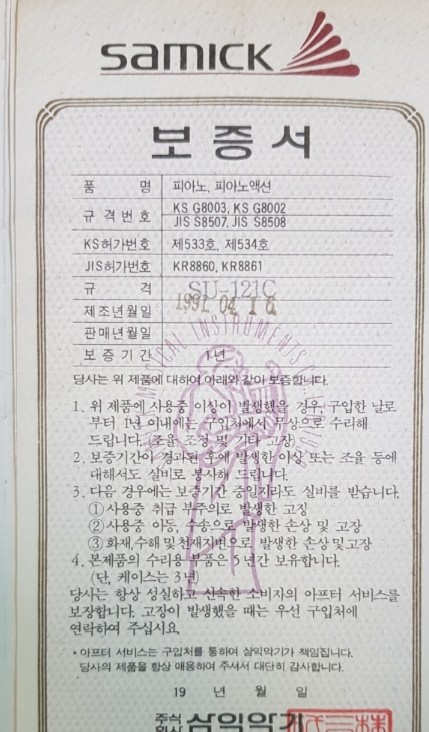 SAMICK
보증서
품 명 피아노, 피아노액션
규격번호 KS G8003, KS G8002
JIS S8507, JIS S8508
KS허가번호 제533호, 제534호
JIS허가번호 KR8860, KR8861
규 격 SU-121C
제조년월일 1991. 04. 16
판매년월일
보증기간 1년
MUSICAL INSTRUMENTS
당사는 위 제품에 대하여 아래와 같이 보증합니다.
1. 위 제품에 사용중 이상이 발생했을 경우, 구입한 날로
부터 1년 이내에는 구입처에서 무상으로 수리해
드립니다. (조율 조정 및 기타 고장)
2. 보증기간이 경과된 후에 발생한 이상 또는 조율 등에
대해서도 실비로 봉사해 드립니다.
3. 다음 경우에는 보증기간 중일지라도 실비를 받습니다.
① 사용중 취급 부주의로 발생한 고장
② 사용중 이동, 수송으로 발생한 손상 및 고장
③ 화재, 수해 및 천재지변으로 발생한 손상 및 고장
4. 본제품의 수리용 부품은 5년간 보유합니다.
(단, 케이스는 3년)
당사는 항상 성실하고 신속한 소비자의 아프터 서비스를
보장합니다. 고장이 발생했을 때는 우선 구입처에
연락하여 주십시요.
• 아프터 서비스는 구입처를 통하여 삼익악기가 책임집니다.
당사의 제품을 항상 애용하여 주셔서 대단히 감사합니다.
19 년 월 일
주식회사 삼익악기